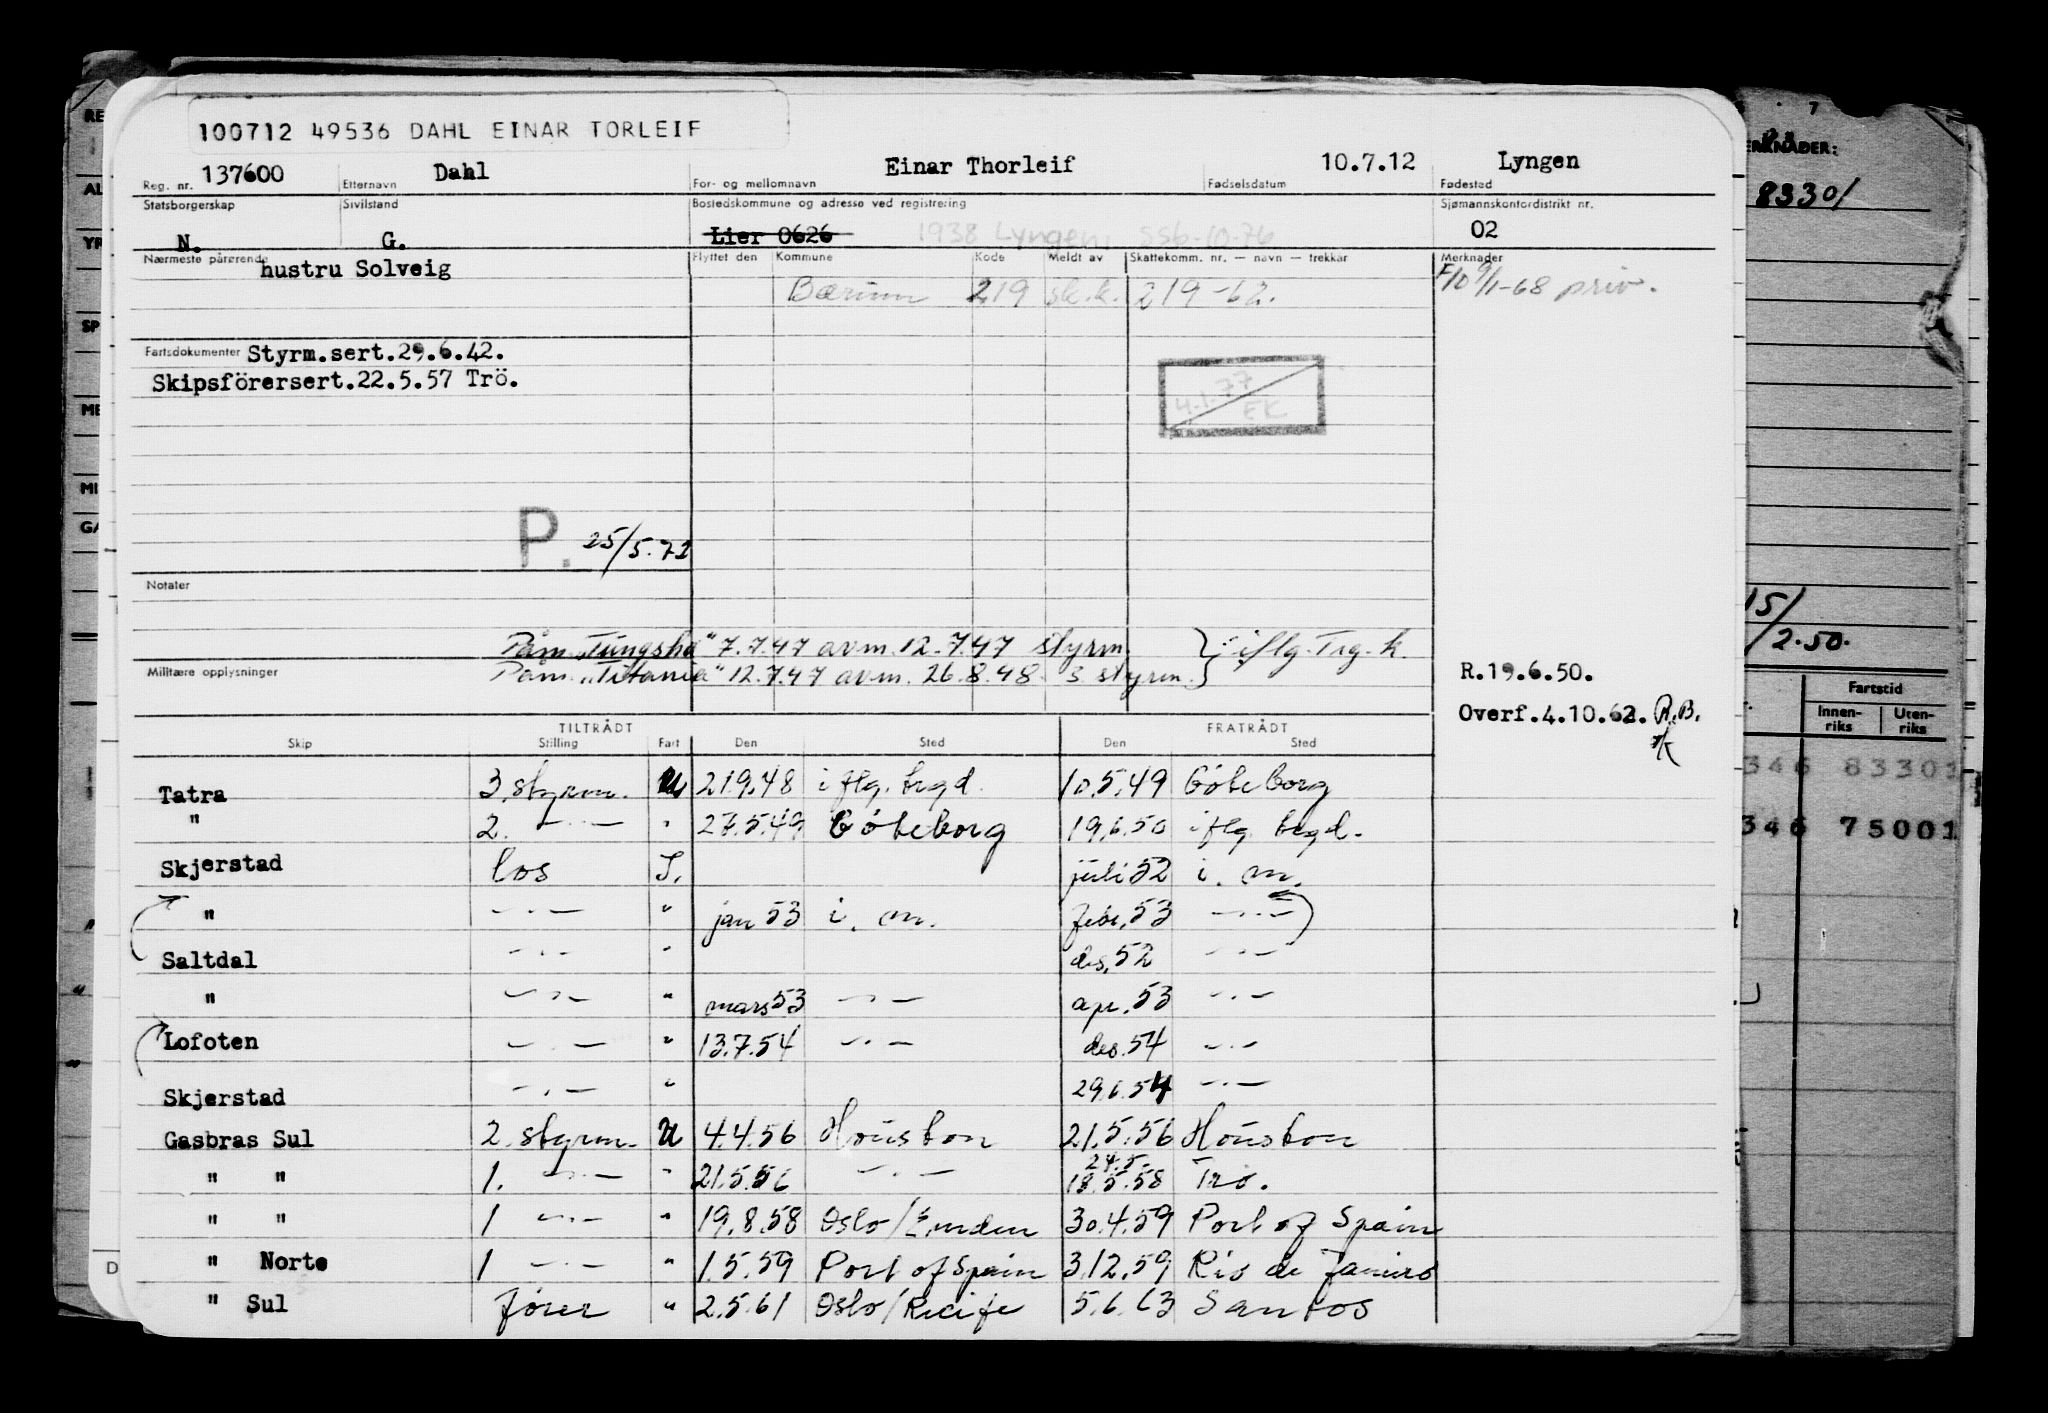 100712 49536 DAHL EINAR TORLEIF
137600 Dahl Einar Thorleif 10.7.12 Lyngen
Reg. nr. Etternavn For- og mellomnavn Fødselsdatum Fødested
Statsborgerskap Sivilstand Bostedskommune og adresse ved registrering Sjømannskontordistrikt nr.
N. G. Lier 0626 1938 Lyngen, SSb-10-76 02
Nærmeste pårørende hustru Solveig Flyttet den Kommune Kode Meldt av Skattekomm. nr. — navn — trekkår Merknader
Bærum 219 sk.k. 219-62. priv.
Fartsdokumenter Styrm.sert.29.6.42.
Skipsförersert.22.5.57 Trö.
4.1.77
EK
P. 25/5.72
Notater
Påm. "Tungsha" 7.7.47 avm. 12.7.47 styrm. } : iflg. Trg. k.
Militære opplysninger Påm. „Titania" 12.7.47 avm. 26.8.48 3. styrm.
R.19.6.50.
Overf.4.10.62. R.B.
TILTRÅDT FRATRÅDT
Skip Stilling Fart Den Sted Den Sted
Tatra 3. styrm. U 21.9.48 i flg. begd. 10.5.49 Göteborg
" 2. —·— " 27.5.49 Göteborg 19.6.50 i flg. begd.
Skjerstad los I. juli 52 i. m.
" —·— " jan 53 i. m. febr. 53 —·—
Saltdal —·— " des. 52 —·—
" —·— " mars 53 —·— apr. 53 —·—
Lofoten —·— " 13.7.54 —·— des. 54 —·—
Skjerstad —·— " 29.6.54 —·—
Gasbras Sul 2. styrm. U 4.4.56 Houston 21.5.56 Houston
" " 1. —·— " 21.5.56 —·— 24.5. 18.5.58 Trö.
" " 1 —·— " 19.8.58 Oslo/Emden 30.4.59 Port of Spain
" Norte 1 —·— " 1.5.59 Port of Spain 3.12.59 Rio de Janeiro
" Sul fører " 2.5.61 Oslo/Recife 5.6.63 Santos
7
ERKNADER:
83301
15/
/2.50.
Fartstid
Innen-
riks
Uten-
riks
346 83301
346 75001
RE
AL
YR
SP
ME
MI
GA
D